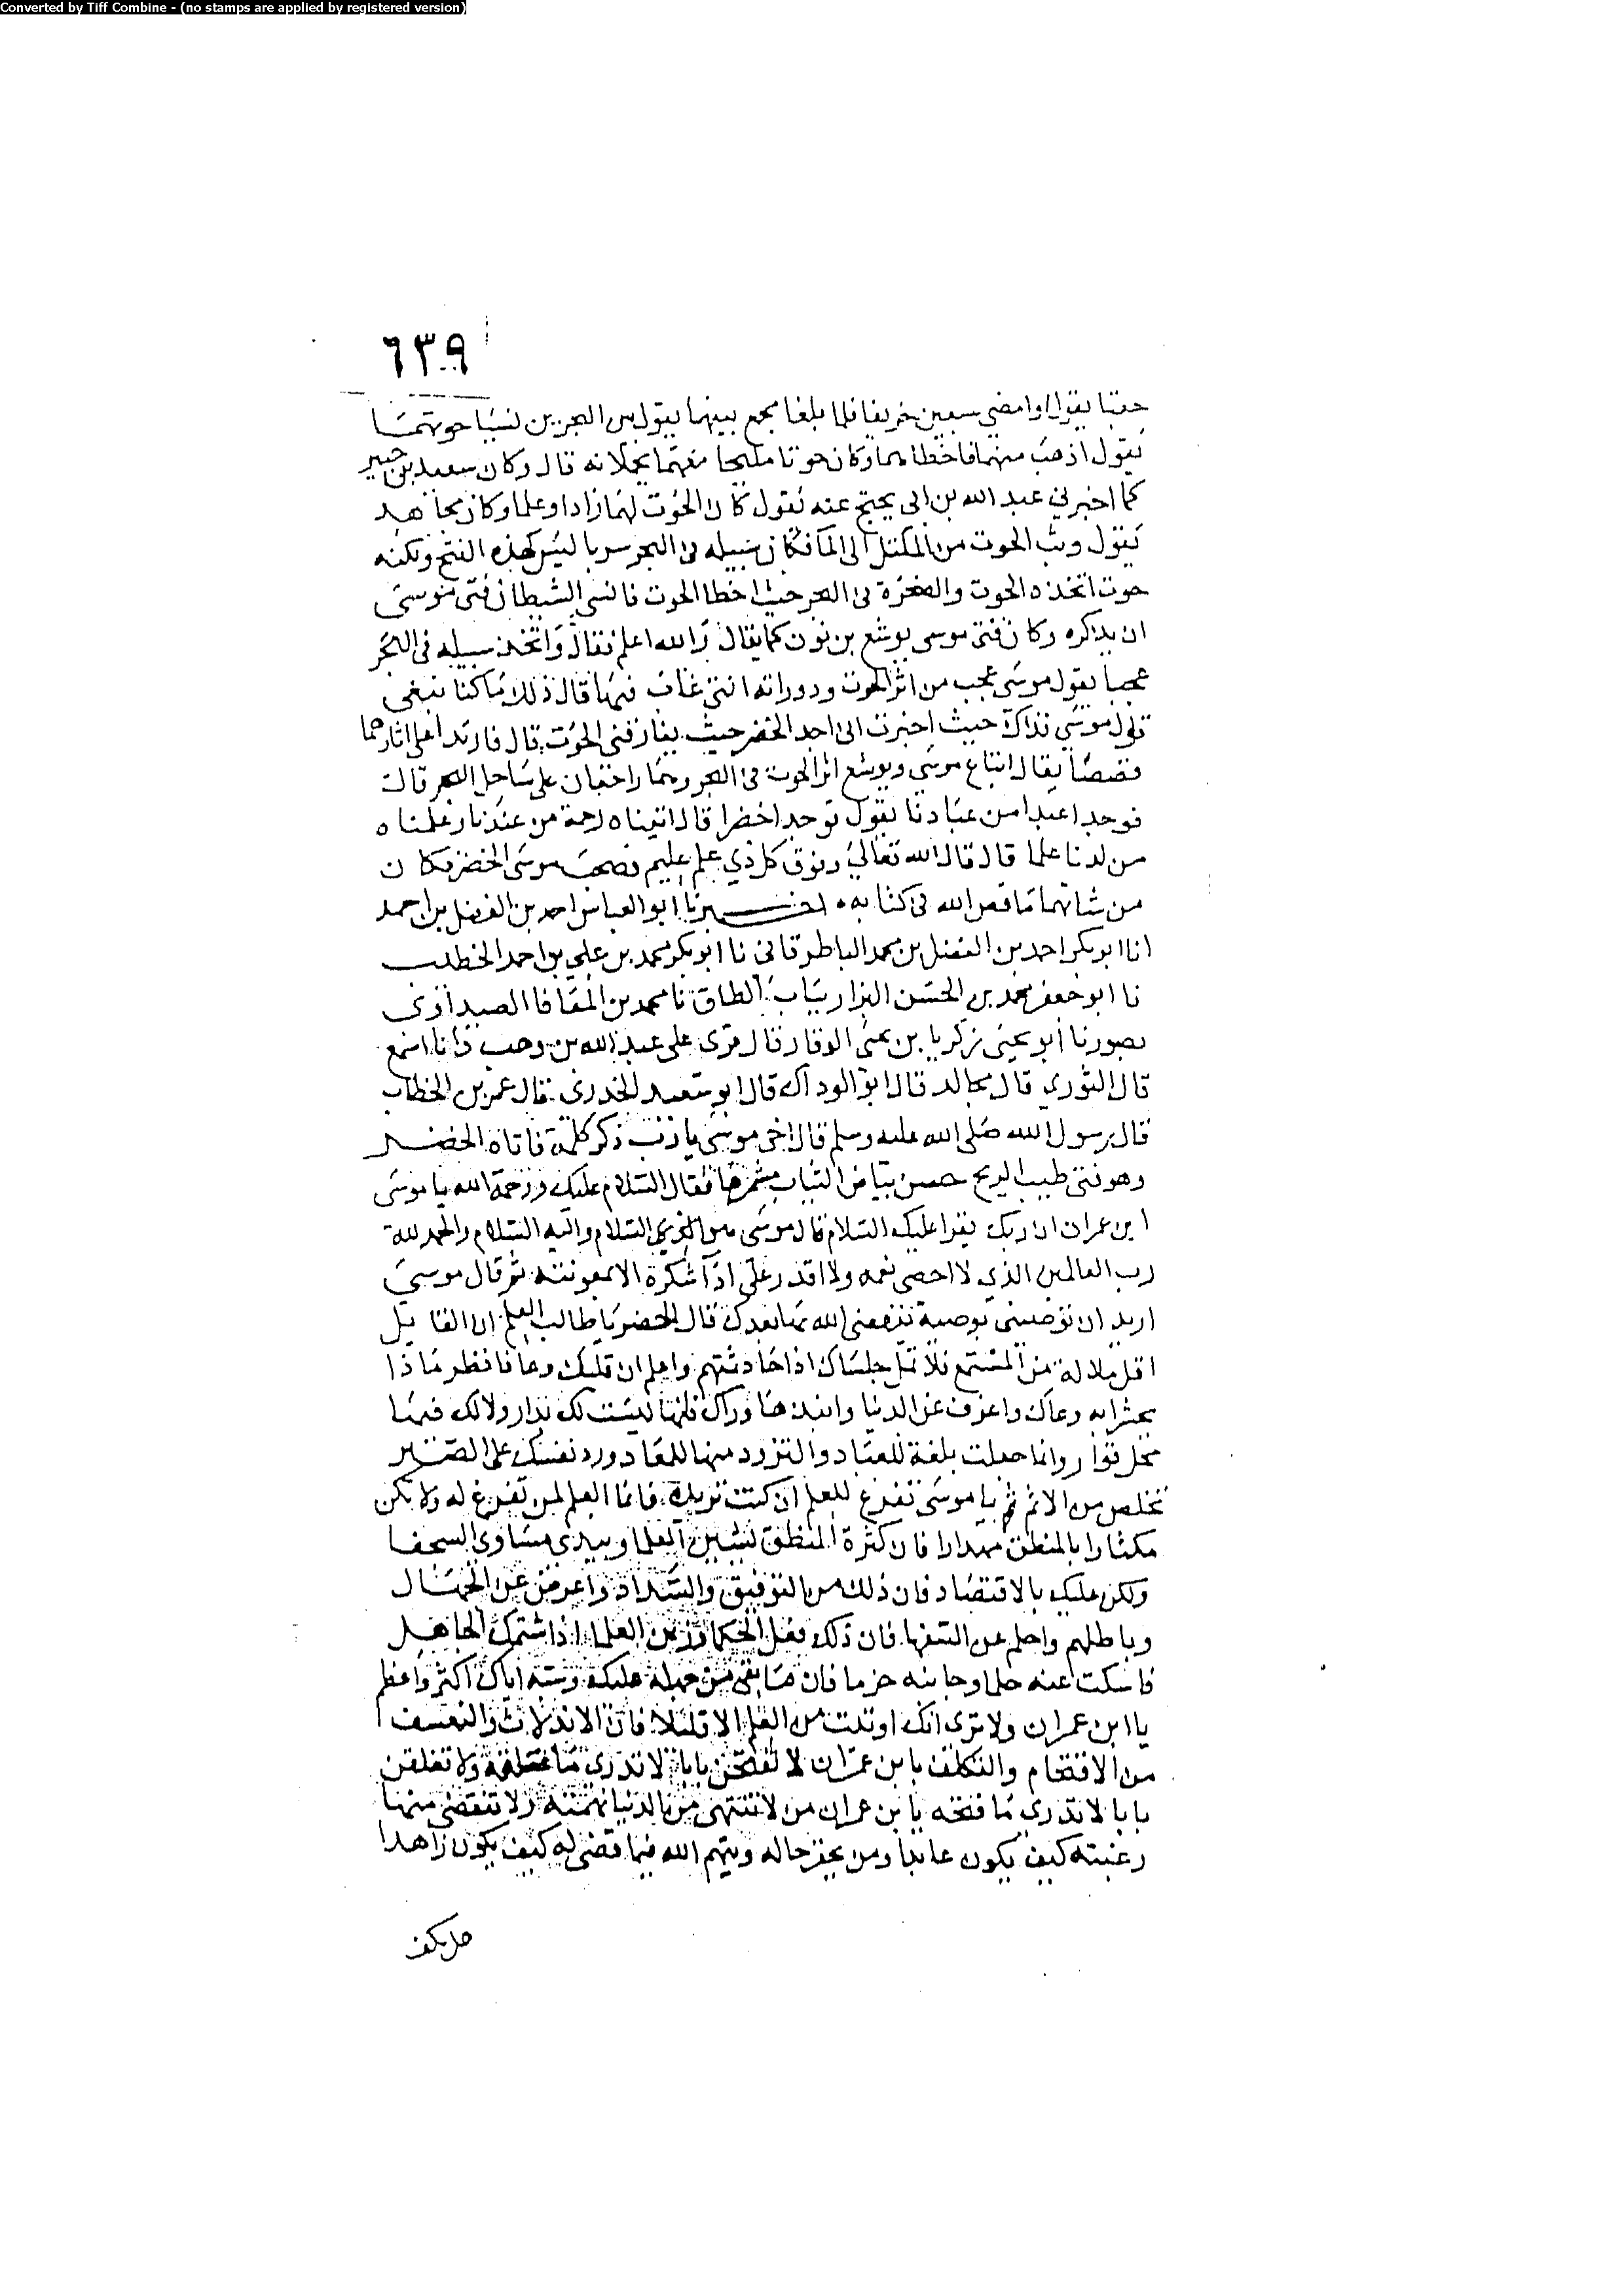 Converted by Tiff Combine - (no stamps are applied by registered version)
٦٣٩
حقبا يقول او امضي سبعين خريفا فلما بلغا مجمع بينهما يقول بين البحرين نسيا حوتهما
يقول اذهب منهما فاخطاهما وكان حوتا مليحا معهما يحملانه قال وكان سعيد بن جبير
كما اخبرني عبد الله بن ابي نجيح عنه يقول كان الحوت لهما زادا وعلما وكان مجاهد
يقول وثب الحوت من المكتل الى الماء فكان سبيله في البحر سربا ليس كهذه
حوت اتخذه الحوت والصخرة في البحر حيث اخطا الحوت فانسى الشيطان فتى موسى
ان يذكره وكان فتى موسى يوشع بن نون كما يقال والله اعلم فقال واتخذ سبيله في البحر
عجبا يقول موسى عجب من اثر الحوت ودوراته التي غاب فيها قال ذلك ما كنا نبغي
قول موسى فذاك حيث اخبرت اني اجد الخضر حيث يفارقني الحوت قال فارتدا على اثارهما
قصصا يقال اتباع موسى ويوشع اثر الحوت في البحر وهما راجعان على ساحل البحر قال
فوجدا عبدا من عبادنا يقول فوجدا خضرا قال اتيناه رحمة من عندنا وعلمناه
من لدنا علما قال قال الله تعالى وفوق كل ذي علم عليم فصحب موسى الخضر فكان
من شانهما ما قص الله في كتابه اخبرنا ابو العباس احمد بن الفضل بن احمد
انا ابو بكر احمد بن الفضل بن محمد الباطرقاني نا ابو بكر محمد بن علي بن احمد الخطيب
نا ابو جعفر محمد بن الحسن البزار بباب الطاق نا محمد بن المعافا الصيداوي
بصور نا ابو يحيى زكريا بن يحيى الوقار قال قرى على عبد الله بن وهب وانا اسمع
قال الثوري قال مجالد قال ابو الوداك قال ابو سعيد الخدري قال عمر بن الخطاب
قال رسول الله صلى الله عليه وسلم قال اخي موسى يا رب ذكر كلمة فاتاه الخضر
وهو فتى طيب الريح حسن بياض الثياب مشمرها فقال السلام عليك ورحمة الله يا موسى
ابن عمران ان ربك يقرا عليك السلام قال موسى هو السلام واليه السلام والحمد لله
رب العالمين الذي لا احصي نعمه ولا اقدر على اداء شكره الا بمعونته ثم قال موسى
اريد ان توصيني بوصية ينفعني الله بها بعدك قال الخضر يا طالب العلم ان القايل
اقل ملالة من المستمع فلا تمل جلساك اذا حادثتهم واعلم ان قلبك وعا فانظر ماذا
تحشوا به وعاك واعزف عن الدنيا وانبذها وراك فانها ليست لك بدار ولا لك فيها
محل قرار وانما جعلت بلغة للعباد والتزود منها للمعاد ورد نفسك على الصبر
تخلص من الاثم ثم يا موسى تفرغ للعلم ان كنت تريده فانما العلم لمن تفرغ له ولا تكن
مكثارا بالمنطق مهدارا فان كثرة المنطق تشين العلما وتبدي مساوي السخفا
ولكن عليك بالاقتصاد فان ذلك من التوفيق والسداد واعرض عن الجهال
وباطلهم واحلم عن السفها فان ذلك فعل الحكما وزين العلما اذا شتمك الجاهل
فاسكت عنه حلما وجانبه حزما فان ما بقى من جهله عليك وشتمه اياك اكثر واعظم
يا ابن عمران ولا ترى انك اوتيت من العلم الا قليلا فان الاندلاث والتعسف
من الاقتحام والتكلف يا بن عمران لا تفتحن بابا لا تدري ما غلقه ولا تغلقن
بابا لا تدري ما فتحه يا بن عمران من لا تنتهي من الدنيا نهمته ولا تنقضي منها
رغبته كيف يكون عابدا ومن يحقر حاله ويتهم الله فيما قضى له كيف يكون زاهدا
هل يكف